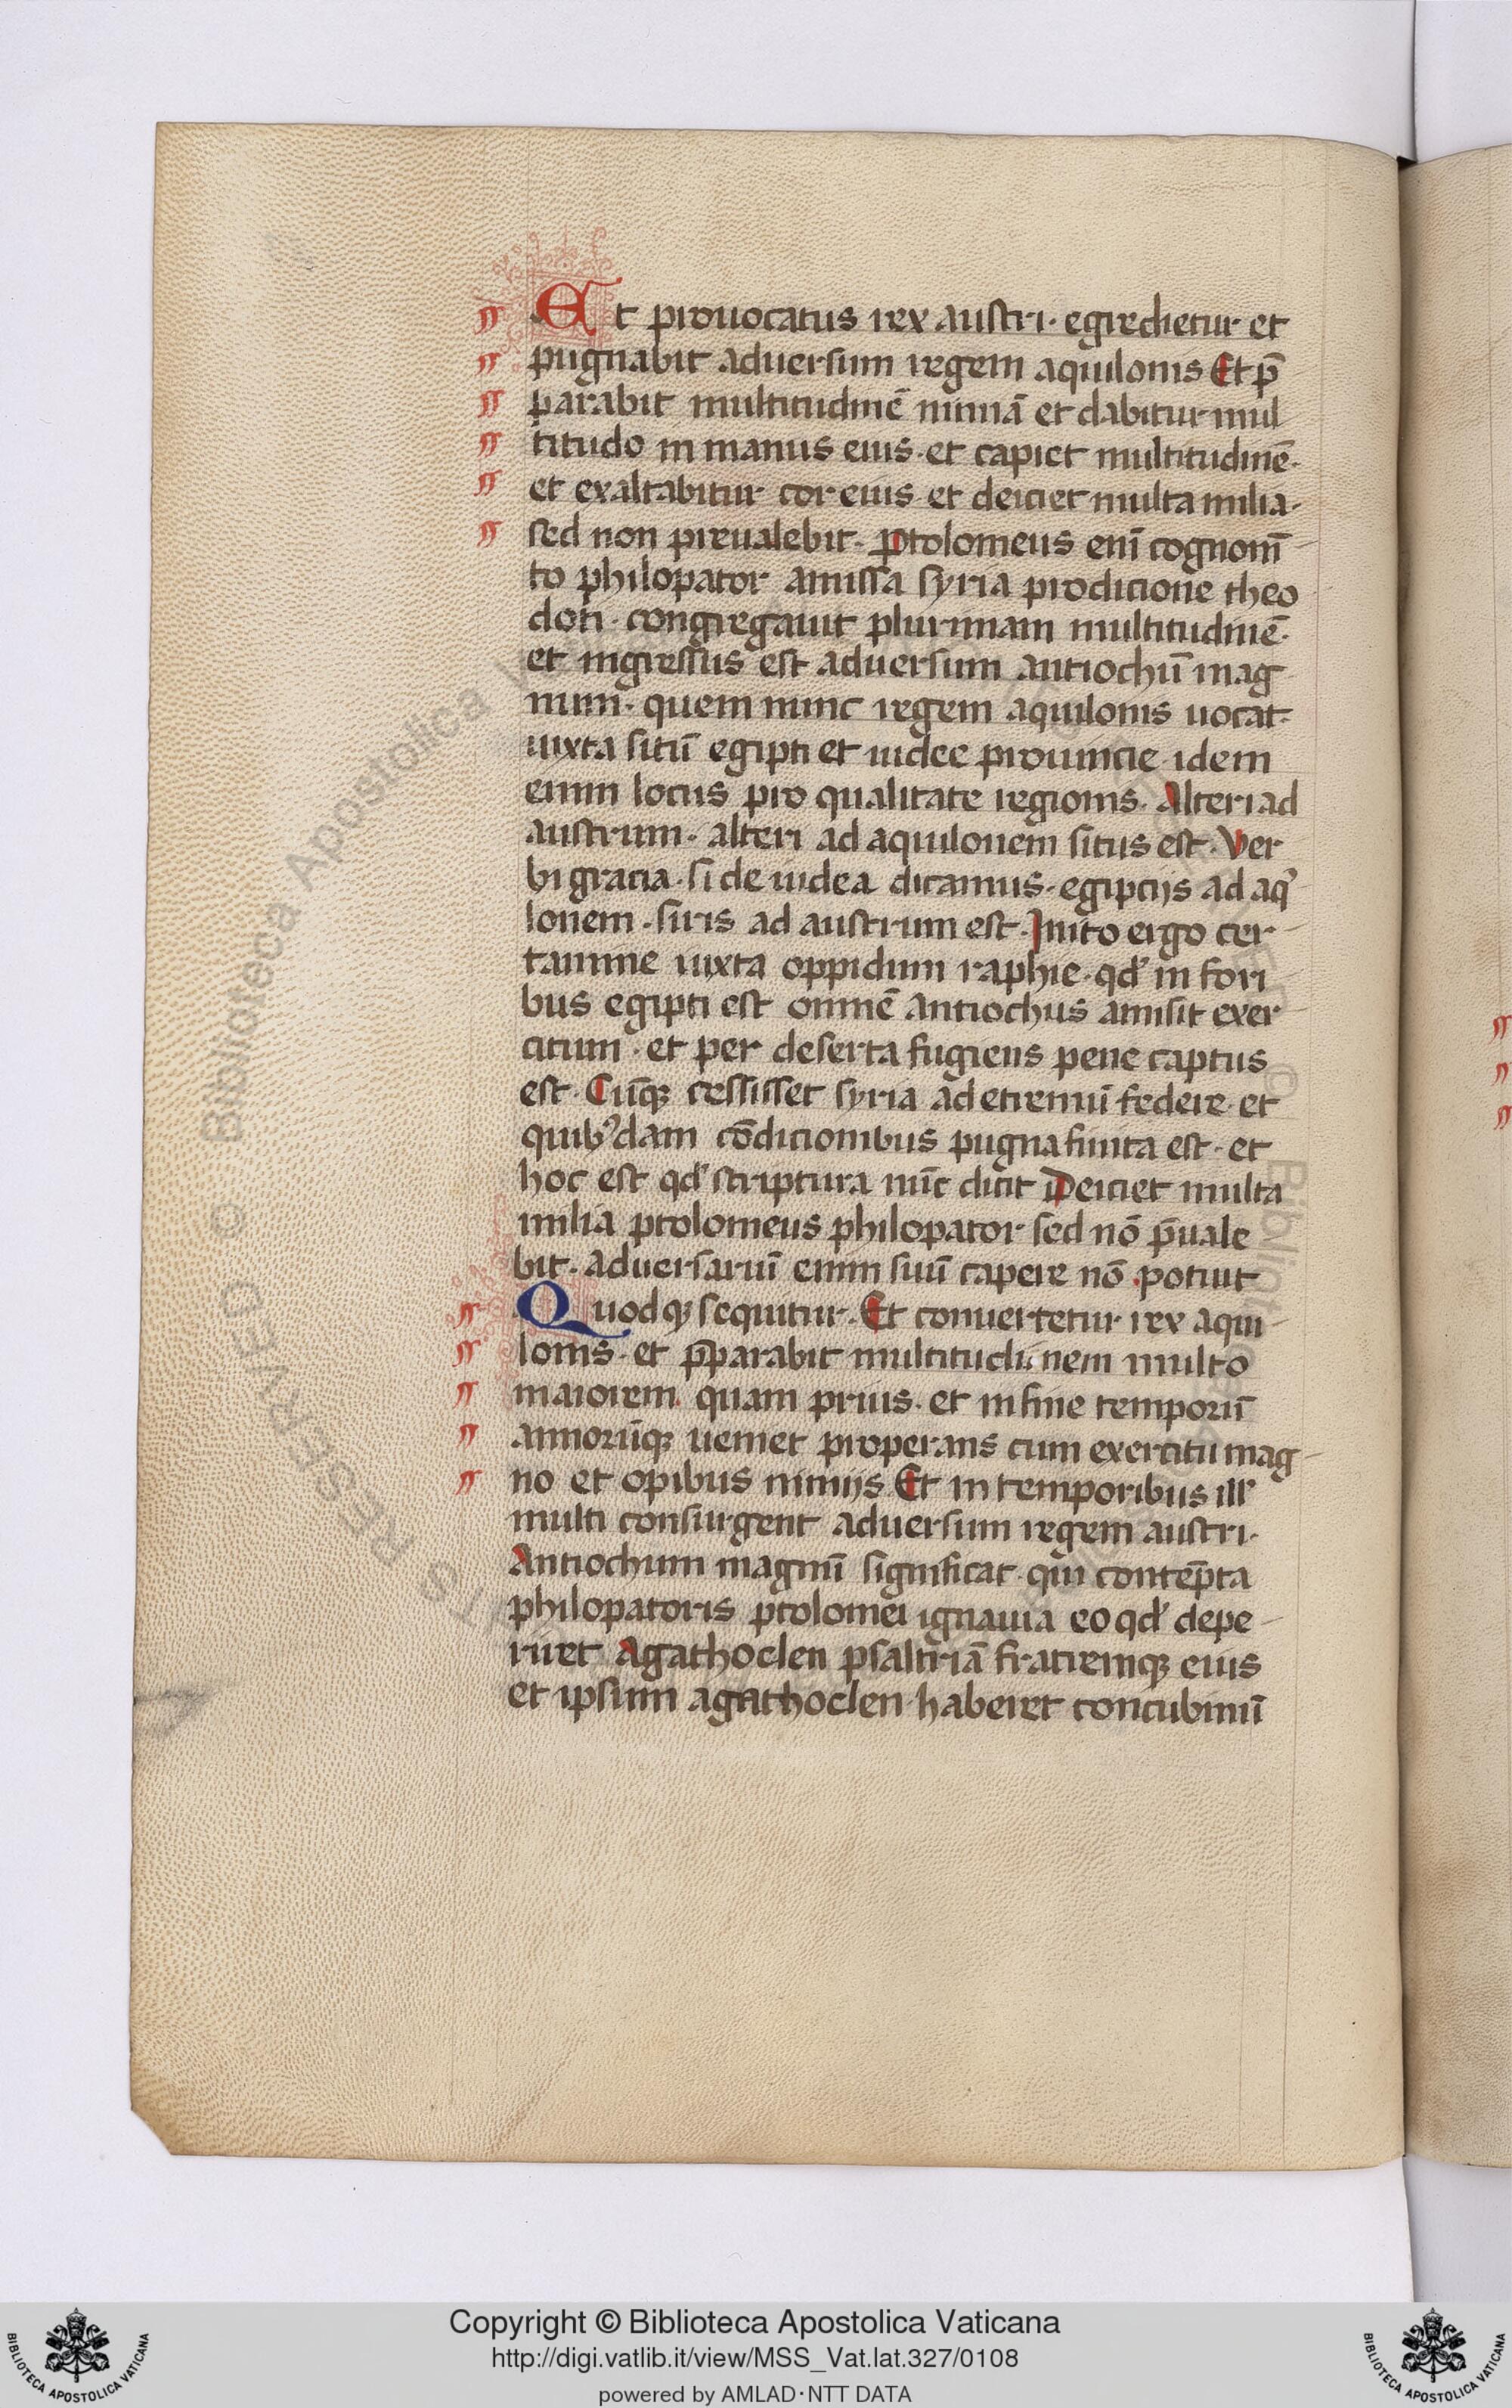 Et prouocatus rex austri· egredietur et
pugnabit aduersum regem aquilonis Et p̄
parabit multitudinē nimiā et dabitur mul
titudo in manus eius· et capiet multitudinē·
et exaltabitur cor eius· et deiciet multa milia·
sed non preualebit· Ptolomeus enī cognomī
to philopator amissa syria prodicione theo
doti· congregauit plurimam multitudinē·
et ingressus est aduersum antiochū mag
num· quem nunc regem aquilonis uocat·
iuxta sitū egipti et iudee prouincie· idem
enim locus pro qualitate regionis· Alteri ad
austrum· alteri ad aquilonem situs est· Ver
bi gracia· si de iudea dicamus· egiptijs ad aqͥ
lonem· siris ad austrum est· Inito ergo cer
tamine iuxta oppidum raphie· qđ in fori
bus egipti est omnē antiochus amisit exer
citum· et per deserta fugiens pene captus
est· Cūqꝫ cessisset syria ad etremū federe· et
quibꝰdam cōdicionibus pugna finita est· et
hoc est qđ scriptura nūc dicit Deiciet multa
milia ptolomeus philopator sed nō p̄uale
bit· aduersariū enim suū capere nō potuit
Quodqꝫ sequitur· Et conuertetur rex aqui
lonis· et p̄parabit multitudinem multo
maiorem quam prius· et in fine temporū
annorūqꝫ ueniet properans cum exercitu mag
no et opibus nimijs Et in temporibus ill'
multi consurgent aduersum regem austri·
Antiochum magnū significat· qui contēpta
philopatoris ptolomei ignauia eo qđ depe
riret Agathoclen psaltriā fratremqꝫ eius
et ipsum agathoclen haberet concubinū
Copyright © Biblioteca Apostolica Vaticana
http://digi.vatlib.it/view/MSS_Vat.lat.327/0108
powered by AMLAD·NTT DATA
BIBLIOTECA APOSTOLICA VATICANA
BIBLIOTECA APOSTOLICA VATICANA